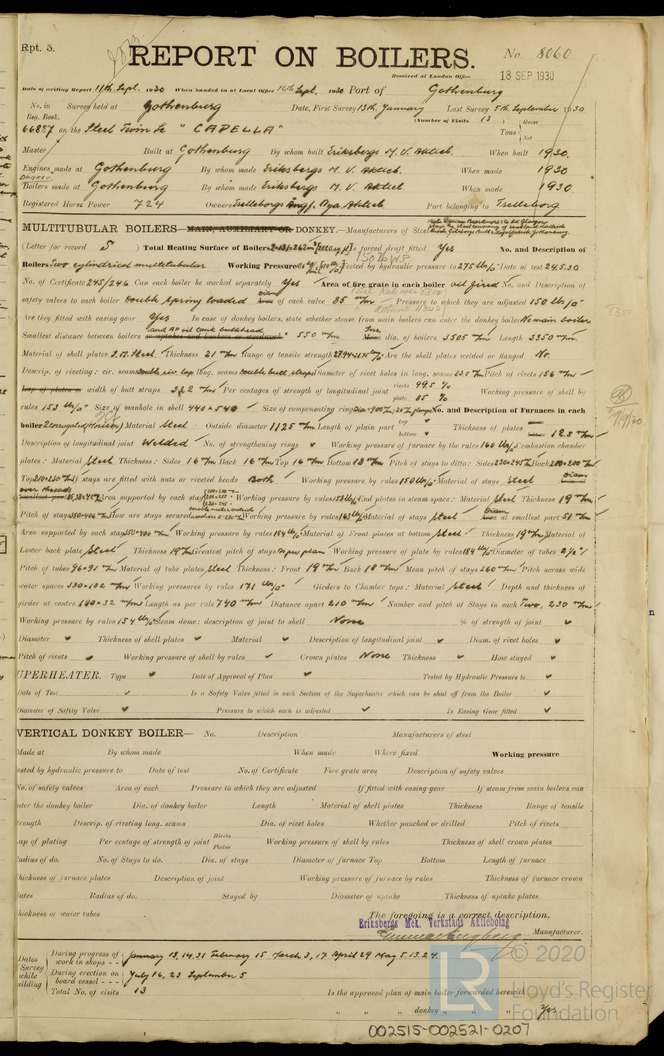 Rpt. 5.
REPORT ON BOILERS.
No. 8060
Received at London Office
18 SEP 1930
Date of writing Report 11th Sept. 1930 When handed in at Local Office 16th Sept. 1930 Port of Gothenburg
No. in Survey held at Gothenburg Date, First Survey 13th January Last Survey 5th September 1930
Reg. Book. (Number of Visits 13)
66857 on the Steel Twin Sc "CAPELLA" Tons Gross Net
Master Built at Gothenburg By whom built Eriksbergs M. V. Aktieb. When built 1930.
Engines made at Gothenburg By whom made Eriksbergs M. V. Aktieb. When made 1930
DONKEY
Boilers made at Gothenburg By whom made Eriksbergs M. V. Aktieb When made 1930
Registered Horse Power 724 Owners Trelleborgs Ångf. Nya Aktieb Port belonging to Trelleborg
MULTITUBULAR BOILERS—MAIN, AUXILIARY OR DONKEY.—Manufacturers of Steel
(Letter for record S) Total Heating Surface of Boilers Is forced draft fitted Yes No. and Description of
Boilers Two cylindrical multitubular Working Pressure Tested by hydraulic pressure to 275 lbs/□" Date of test 24.5.30
150 lb W.P
No. of Certificate 245/246 Can each boiler be worked separately Yes Area of fire grate in each boiler oil fired No. and Description of
safety valves to each boiler Double spring loaded Area of each valve 85 m/m Pressure to which they are adjusted 150 lbs/□"
Are they fitted with easing gear Yes In case of donkey boilers, state whether steam from main boilers can enter the donkey boiler No main boiler
and AP oil tank bulkhead
Smallest distance between boilers or uptakes and bunkers or woodwork 550 m/m Mean dia. of boilers 3505 m/m Length 3350 m/m
Material of shell plates S.M. Steel Thickness 21 m/m Range of tensile strength Are the shell plates welded or flanged No
Descrip. of riveting: cir. seams double riv. lap long. seams double butt straps Diameter of rivet holes in long. seams 23.5 m/m Pitch of rivets 156 m/m
Lap of plates or width of butt straps 332 m/m Per centages of strength of longitudinal joint rivets 99.5 % plate 85 % Working pressure of shell by
rules 153 lbs/□" Size of manhole in shell 440×540 Size of compensating ring No. and Description of Furnaces in each
boiler 2 corrugated (Morison) Material Steel Outside diameter 1125 m/m Length of plain part top bottom Thickness of plates 12.3 m/m
Description of longitudinal joint Welded No. of strengthening rings ✓ Working pressure of furnace by the rules 160 lbs/□" Combustion chamber
plates: Material Steel Thickness: Sides 16 m/m Back 16 m/m Top 16 m/m Bottom 18 m/m Pitch of stays to ditto: Sides 230×245 m/m Back 200×200 m/m
Top If stays are fitted with nuts or riveted heads Both Working pressure by rules 150 lbs/□" Material of stays Steel
Area supported by each stay Working pressure by rules End plates in steam space: Material Steel Thickness 19 m/m
Pitch of stays 350×406 m/m How are stays secured Working pressure by rules Material of stays Steel at smallest part 51 m/m
Area supported by each stay 350×406 m/m Working pressure by rules 154 lbs/□" Material of Front plates at bottom Steel Thickness 19 m/m Material of
Lower back plate Steel Thickness 19 m/m Greatest pitch of stays as per plan Working pressure of plate by rules 184 lbs/□" Diameter of tubes 2½"
Pitch of tubes 96×91 m/m Material of tube plates Steel Thickness: Front 19 m/m Back 18 m/m Mean pitch of stays 260 m/m Pitch across wide
water spaces 330×102 m/m Working pressures by rules 171 lbs/□" Girders to Chamber tops: Material Steel Depth and thickness of
girder at centre 180×32 m/m Length as per rule 740 m/m Distance apart 210 m/m Number and pitch of Stays in each Two, 230 m/m
Working pressure by rules 154 lbs/□" Steam dome: description of joint to shell None % of strength of joint ✓
Diameter ✓ Thickness of shell plates ✓ Material ✓ Description of longitudinal joint ✓ Diam. of rivet holes ✓
Pitch of rivets ✓ Working pressure of shell by rules ✓ Crown plates None Thickness ✓ How stayed ✓
UPERHEATER. Type ✓ Date of Approval of Plan ✓ Tested by Hydraulic Pressure to ✓
Date of Test ✓ Is a Safety Valve fitted to each Section of the Superheater which can be shut off from the Boiler ✓
Diameter of Safety Valve ✓ Pressure to which each is adjusted ✓ Is Easing Gear fitted ✓
VERTICAL DONKEY BOILER— No. Description Manufacturers of steel
Made at By whom made When made Where fixed Working pressure
ested by hydraulic pressure to Date of test No. of Certificate Fire grate area Description of safety valves
No. of safety valves Area of each Pressure to which they are adjusted If fitted with easing gear If steam from main boilers can
nter the donkey boiler Dia. of donkey boiler Length Material of shell plates Thickness Range of tensile
trength Descrip. of riveting long. seams Dia. of rivet holes Whether punched or drilled Pitch of rivets
ap of plating Per centage of strength of joint Rivets Plates Working pressure of shell by rules Thickness of shell crown plates
adius of do. No. of Stays to do. Dia. of stays Diameter of furnace Top Bottom Length of furnace
hickness of furnace plates Description of joint Working pressure of furnace by rules Thickness of furnace crown
lates Radius of do. Stayed by Diameter of uptake Thickness of uptake plates
hickness of water tubes
The foregoing is a correct description,
Eriksbergs Mek. Verkstads Aktiebolag
Manufacturer.
Dates Survey while uilding
During progress of work in shops - - January 13, 14, 31 February 15 March 3, 17 April 29 May 5, 13, 24.
During erection on board vessel - - - July 16, 23 September 5
Total No. of visits 13
Is the approved plan of main boiler forwarded herewith
" " " donkey " " " Yes
LR © 2020
Lloyd's Register
Foundation
002515-002521-0207